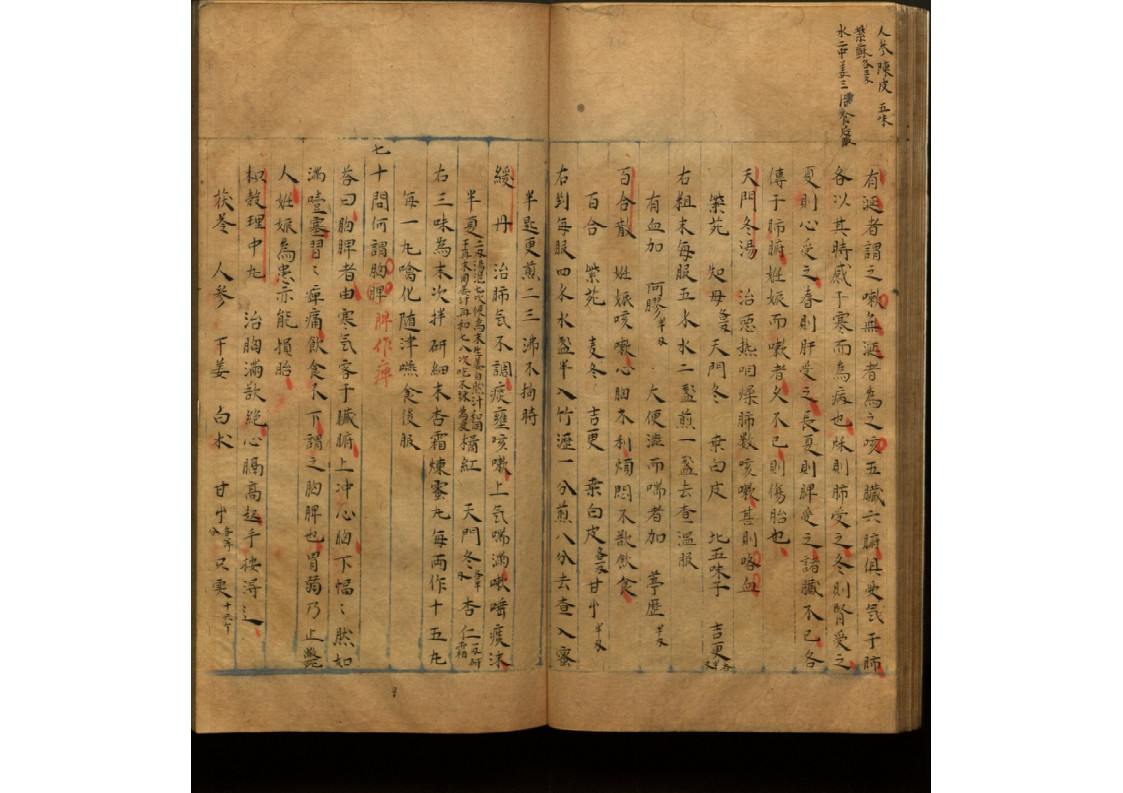 人參 陳皮 五味
紫蘇
水二中姜三
有涎者謂之嗽無涎者為之咳五臟六腑俱受氣于肺
各以其時感于寒而為病也秌則肺受之冬則腎受之
夏則心受之春則肝受之長夏則脾受之諸臟不已各
傳于肺腑姙娠而嗽者久不已則傷胎也
天門冬湯 治惡热咽燥肺数咳嗽甚則咯血
紫苑 知母各 天門冬 桒白皮 北五味子 吉更各
右粗末每服五水水二盞煎一盞去查温服
有血加 阿膠半 大便澁而喘者加 葶歷半
百合散 姙娠咳嗽心胸不利煩悶不歆飲食
百合 紫苑 麦冬 吉更 桒白皮各 甘屮半
右剉每服四水水盞半入竹瀝一分煎八分去查入蜜
半匙更煎二三沸不拘時
緩丹 治肺氣不調痰壅咳嗽上氣喘滿嗽唾痰沫
半夏 橘紅 天門冬 杏仁
右三味為末次拌研細末杏霜煉蜜丸每両作十五丸
每一丸噙化随津嚥食後服
七十問何謂胸脾 脾作痺
荅曰胸脾者由寒氣客于臟腑上冲心胸下愊〻然如
滿噎塞習〻痺痛飲食不下謂之胸脾也胃蒻乃止
人姙娠為患亦能損胎
枳殼理中丸 治胸滿歆絶心膈高起手㨿淂
茯苓 人參 干姜 白朮 甘屮各等 只实